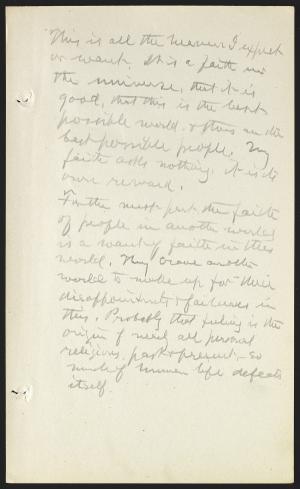 This is all the heaven I expect
or want. It is a faith in
the universe, that it is
good, that this is the best
possible world & these are the
best possible people. My
faith asks nothing, it is its
own reward.
For the most part the faith
of people in another world
is a want of faith in this
world. They crave another
world to make up for their
disappointments & failures in
this. Probably that feeling is the
origin of nearly all personal
religions, past & present, – so
much of human life defeats
itself.